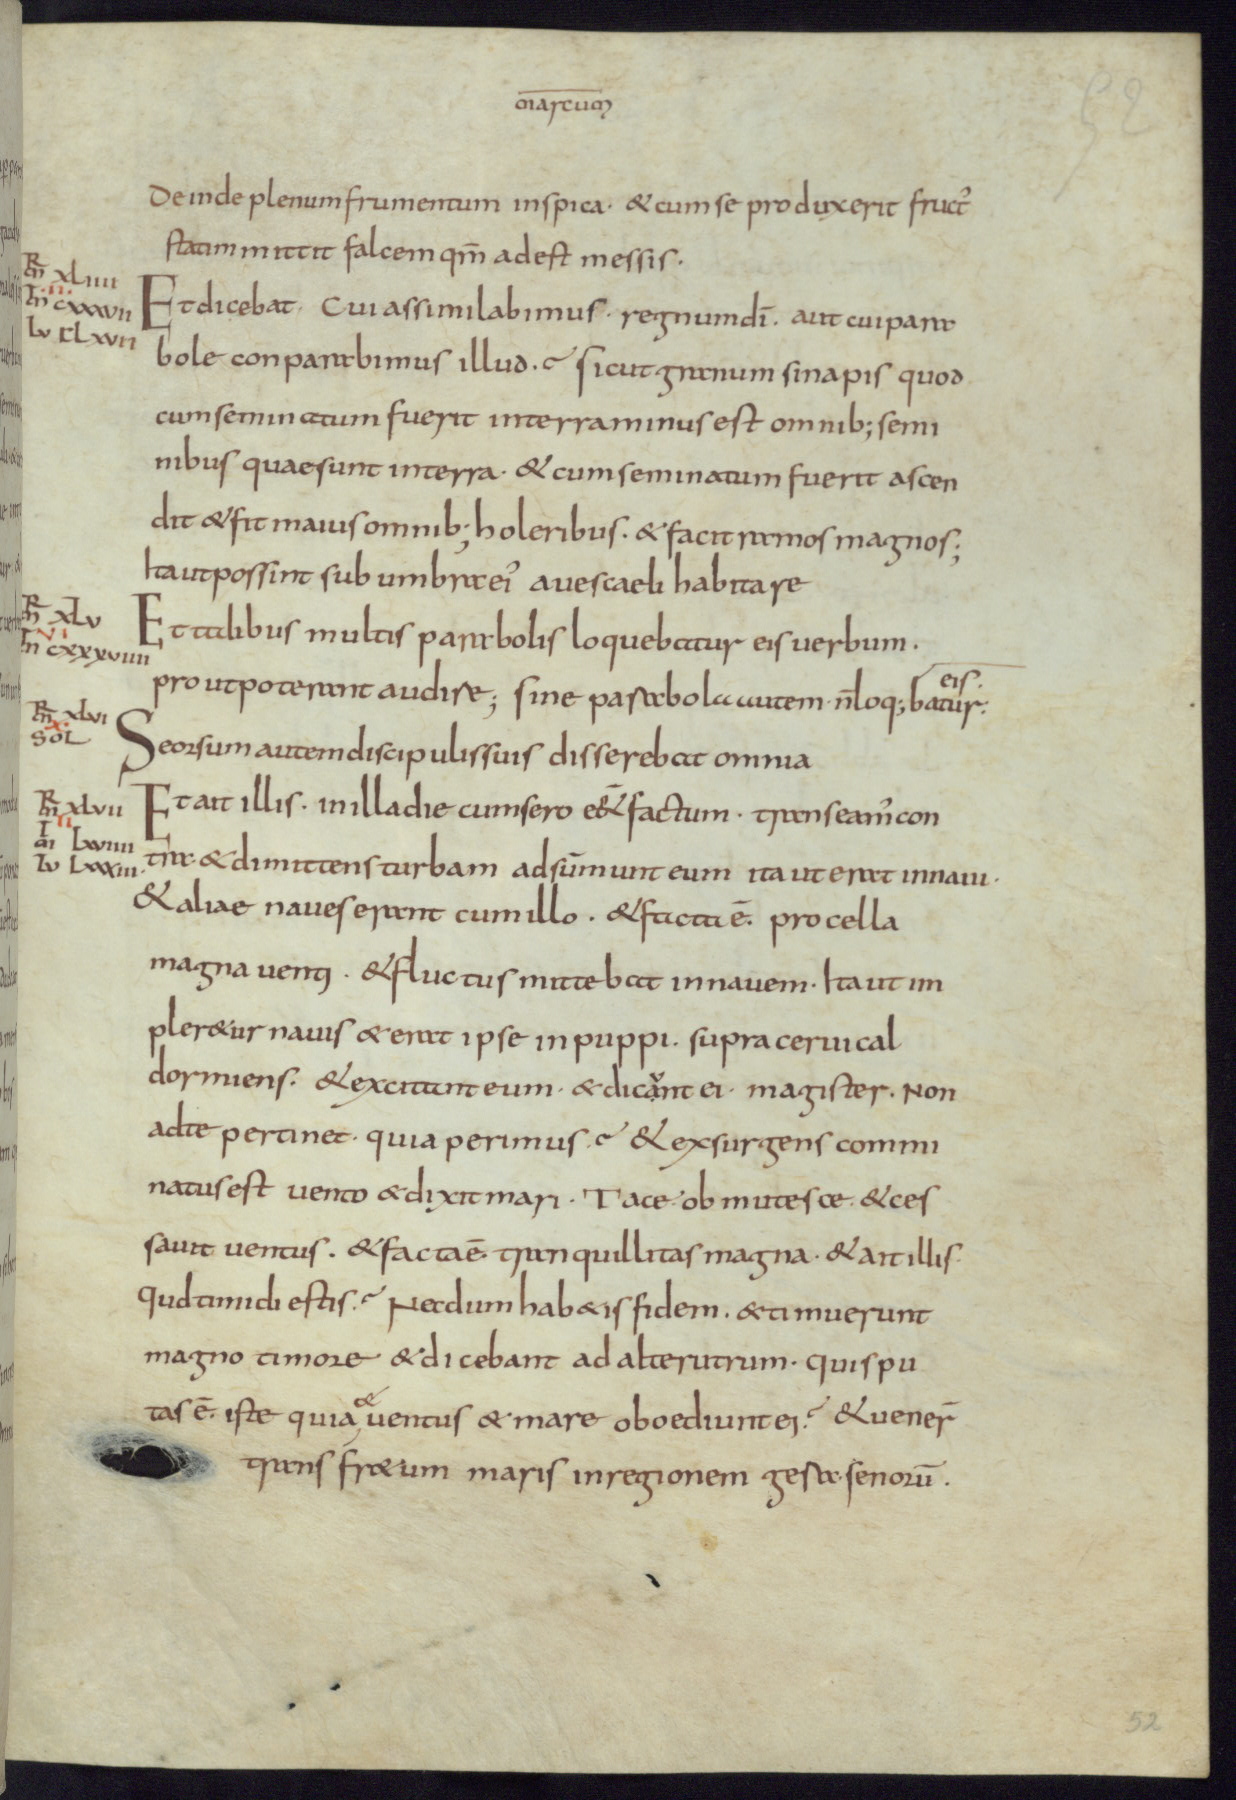 marcum
52
Deinde plenum frumentum in spica · & cum se produxerit fruct᾽
statim mittit falcem qm̄ adest messis ·
R
m̄ xLiiii
iii
m̄ cxxxvii
Lv cLxvii
Et dicebat · Cui assimilabimus · regnum dī · aut cui para
bole conparabimus illud · ? sicut granum sinapis quod
cum seminatum fuerit in terra minus est omnib; semi
nibus quae sunt in terra · & cum seminatum fuerit ascen
dit & fit maius omnib; holeribus · & facit ramos magnos ;
Ita ut possint sub umbra ei᾽ aves caeli habitare
R
m̄ xLv
vi
m̄ cxxxviiii
Et talibus multis parabolis loquebatur eis uerbum ·
prout poterant audire ; sine parabola autem · n̄ loq; batur :
eis ·
R
m̄ xLvi
x
soL
Seorsum autem discipulis suis disserebat omnia
R
m̄ xLvii
ii
mī Lxviiii
Lv Lxxxiii ·
Et ait illis · in illa die cum sero e&̄ factum · transeam᾽ con
tra · & dimittens turbam adsūmunt eum ita ut erat in naui ·
& aliae naues erant cum illo · & facta ē · procella
magna uenti · & fluctus mittebat in nauem · Ita ut im
pler&ur nauis & erat ipse in puppi · supra ceruical
dormiens · & excitant eum · & dicunt ei · magister · Non
ad te pertinet · quia perimus · ? & exsurgens commi
natus est uento & dixit mari · Tace · obmutesce · & ces
sauit uentus · & facta ē · tranquillitas magna · & ait illis ·
Quid timidi estis · ? Necdum hab&is fidem · & timuerunt
magno timore & dicebant ad alterutrum · quis pu
tas ē · iste quia & uentus & mare oboediunt ei · ? & uener̄
trans fr&um maris in regionem gerasenorū ·
52